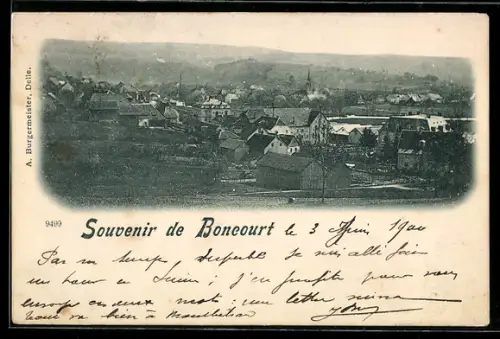 A. Burgermeister, Delle.
9499
Souvenir de Boncourt le 3 Juin 1900
Par un temps superbe je suis allé faire
un tour à Suisse; j'en profite pour vous
envoyer ces deux mots: une lettre suivra
Tout va bien à